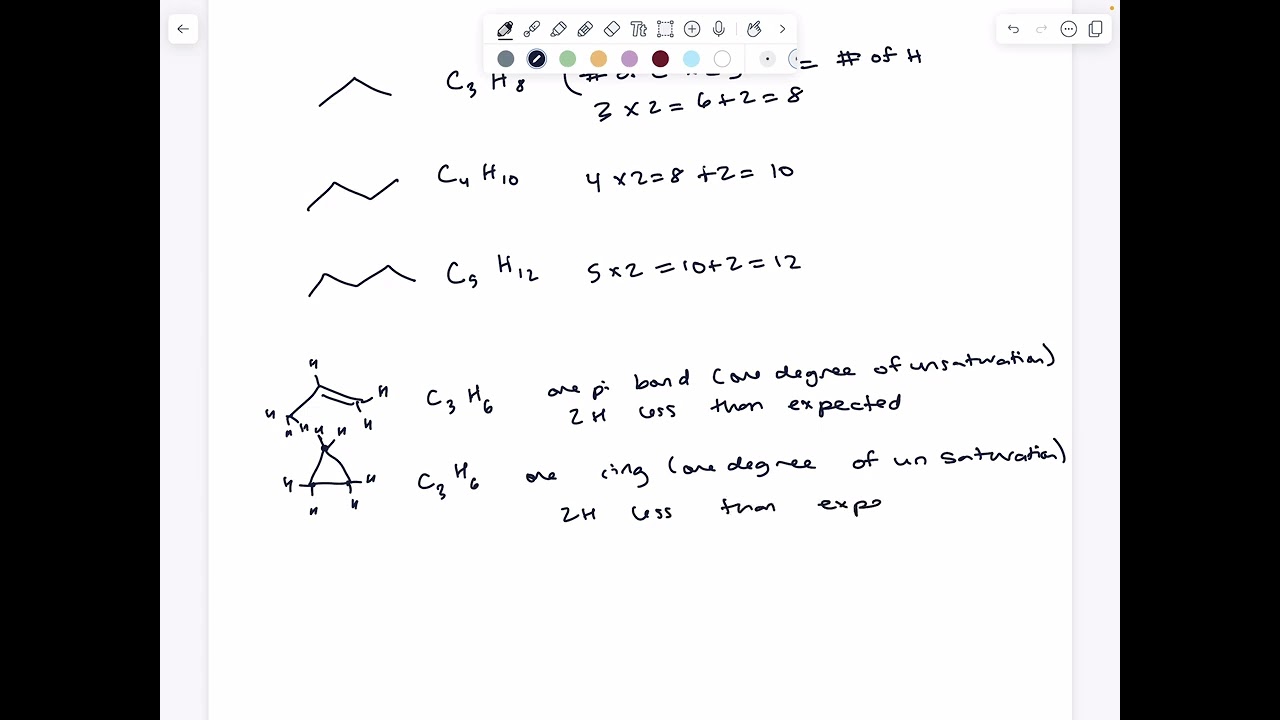 C3 H8 = # of H
3 x 2 = 6 + 2 = 8
C4 H10 4 x 2 = 8 + 2 = 10
C5 H12 5 x 2 = 10 + 2 = 12
H
H H H H H
C3 H6 one pi bond (one degree of unsaturation)
2H less than expected
H H
H H H H
C3 H6 one ring (one degree of unsaturation)
2H less than expe
Tt